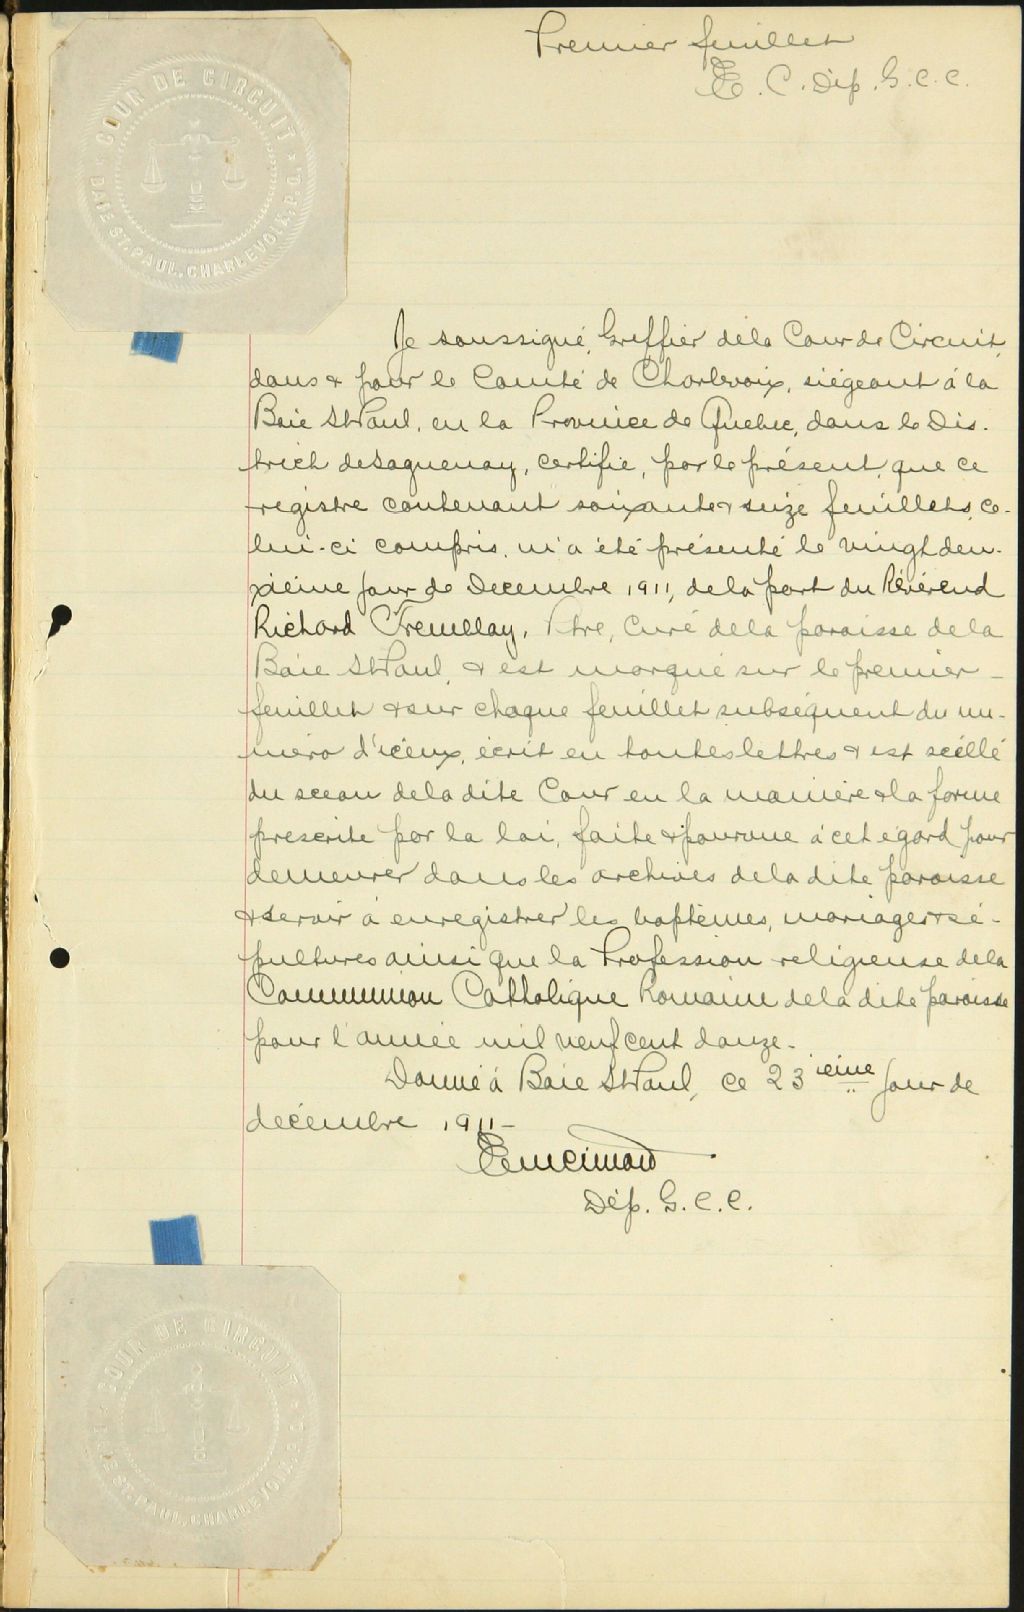 Premier feuillet
E. C. Dép. G. C. C.
COUR DE CIRCUIT
BAIE ST. PAUL, CHARLEVOIX, P. Q.
Je soussigné, Greffier de la Cour de Circuit,
dans & pour le Comté de Charlevoix, siégeant à la
Baie St Paul, en la Province de Québec, dans le Dis-
trict de Saguenay, certifie, par le présent, que ce
registre contenant soixante & seize feuillets, ce-
lui-ci compris, m'a été présenté le vingt deu-
xième jour de Decembre 1911, de la part du Révérend
Richard Tremblay, Ptre, Curé de la paroisse de la
Baie St Paul, & est marqué sur le premier -
feuillet & sur chaque feuillet subséquent du nu-
méro d'iceux, écrit en toutes lettres & est scéllé
du sceau de la dite Cour en la manière & la forme
prescrite par la loi, faite & pourvue à cet égard pour
demeurer dans les archives de la dite paroisse
& servir à enregistrer les baptèmes, mariages & sé-
pultures ainsi que la Profession religieuse de la
Communion Catholique Romaine de la dite paroisse
pour l'année mil neuf cent douze.
Donné à Baie St Paul, ce 23 ième jour de
décembre 1911 -
Dép. G. C. C.
COUR DE CIRCUIT
BAIE ST. PAUL, CHARLEVOIX, P. Q.